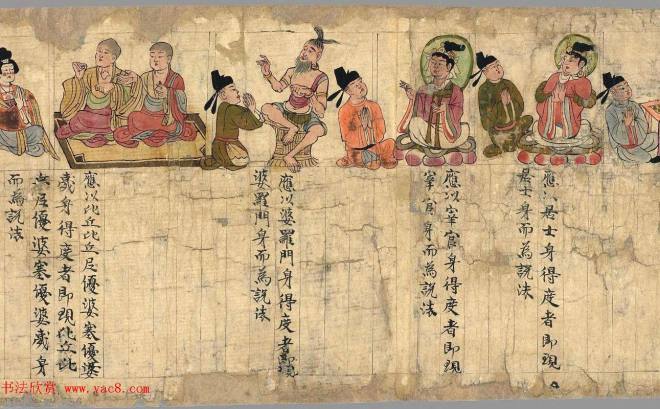 應以居士身得度者即現
居士身而為説法
應以宰官身得度者即現
宰官身而為説法
應以婆羅門身得度者即現
婆羅門身而為説法
應以比丘比丘尼優婆塞優婆
夷身得度者即現比丘比
丘尼優婆塞優婆夷身
而為説法
书法欣赏 www.yac8.com